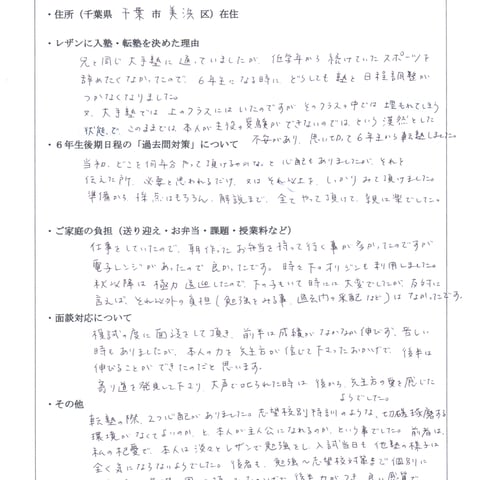 ・住所（千葉県 千葉 市 美浜 区）在住
・レザンに入塾・転塾を決めた理由
兄と同じ大手塾に通っていましたが、低学年から続けていたスポーツを
辞めたくなかったので、6年生になる時に、どうしても塾と日程調整が
つかなくなりました。
又、大手塾では上のクラスにはいたのですがそのクラスの中では埋もれてしまう
状態で、このままでは、本人が主役の受験ができないのでは、という漠然とした
不安があり、思い切って6年生から転塾しました。
・６年生後期日程の「過去問対策」について
当初、どこを何年分やって頂けるのかな、と心配もありましたが、それを
伝えた所、必要と思われるだけ、又はそれ以上を、しっかりみて頂けました。
準備から採点はもちろん、解説まで、全てやって頂けて、親は楽でした。
・ご家庭の負担（送り迎え・お弁当・課題・授業料など）
仕事をしていたので、朝作ったお弁当を持って行く事が多かったのですが
電子レンジがあったので良かったです。時々下のオリジンも利用しました。
秋以降は極力送迎したので、下の子もいて時には大変でしたが、反対に
言えば、それ以外の負担（勉強をみる事、過去問の采配など）はなかったです。
・面談対応について
模試の度に面談をして頂き、前半は成績がなかなか伸びず、苦しい
時もありましたが、本人の力を先生方が信じて下さったおかげで、後半は
伸びることができたのだと思います。
寄り道を発見して下さり、大声で叱られた時は後から、先生方の愛を感じた
ようでした。
・その他
転塾の際、2つ心配がありました。志望校別特訓のような、切磋琢磨する
環境がなくてよいのか、と本人が主人公になれるのか、という事でした。前者は、
私の杞憂で、本人は淡々とレザンで勉強をし、入試当日も他塾の様子は
全く気にならないようでした。後者も、勉強～志望校対策まで個別に